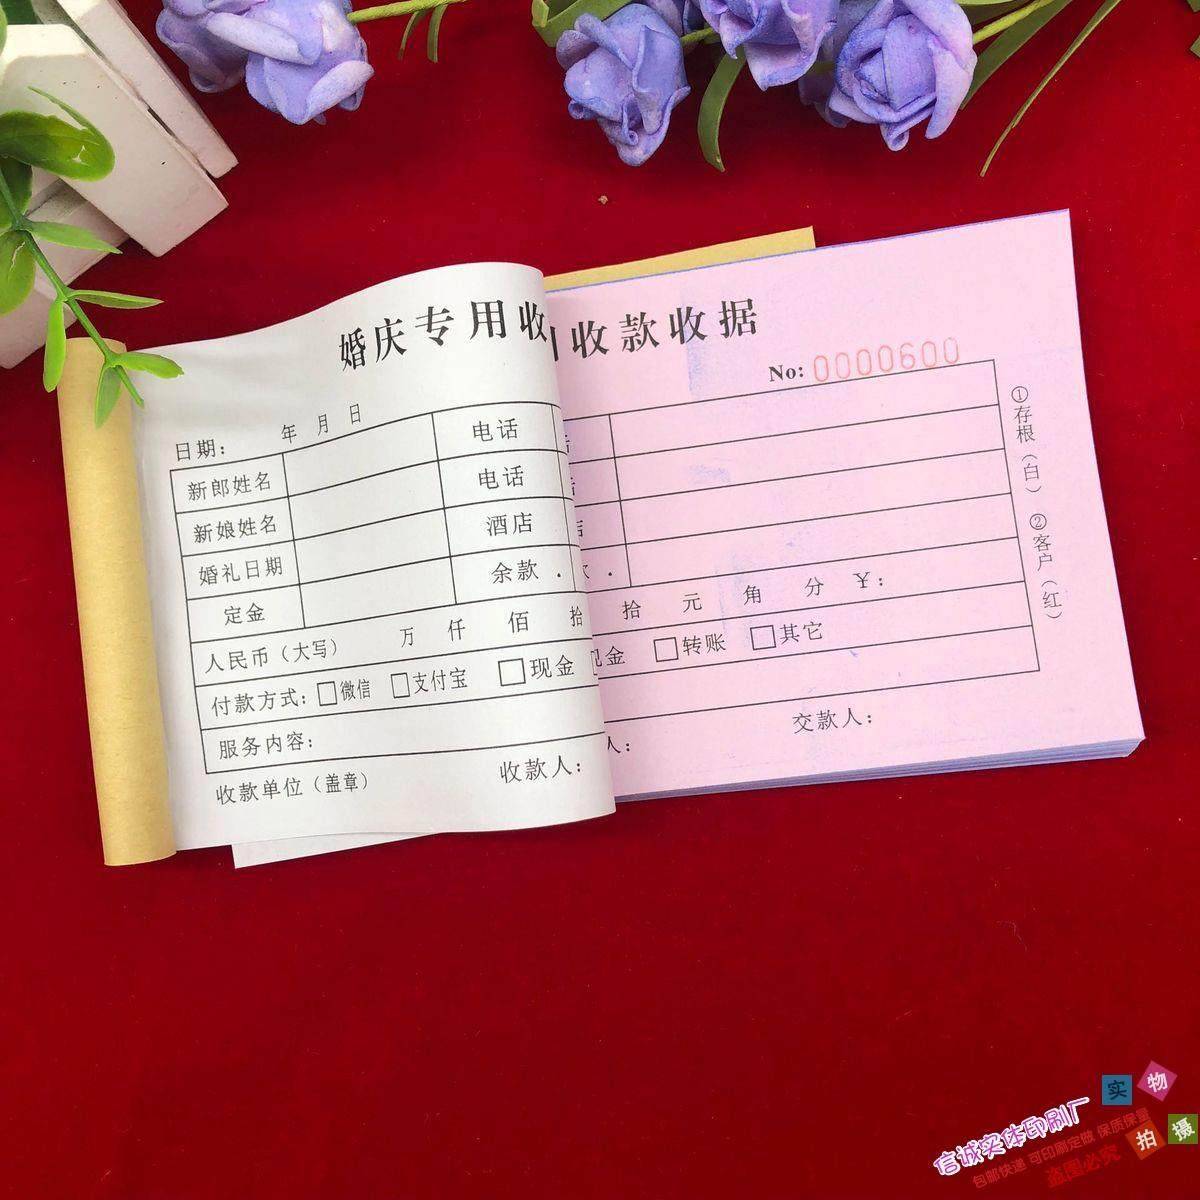 婚庆专用收
日期： 年 月 日
新郎姓名 电话
新娘姓名 电话
婚礼日期 酒店
定金 余款
人民币（大写） 万 仟 佰 拾
付款方式：□微信 □支付宝 □现金
服务内容：
收款单位（盖章） 收款人：
收款收据
No: 0000600
拾 元 角 分 ¥：
金 □转账 □其它
人： 交款人：
①存根（白） ②客户（红）
实物
拍摄
信诚实体印刷厂
包邮快递 可印刷定做 保质保量
盗图必究